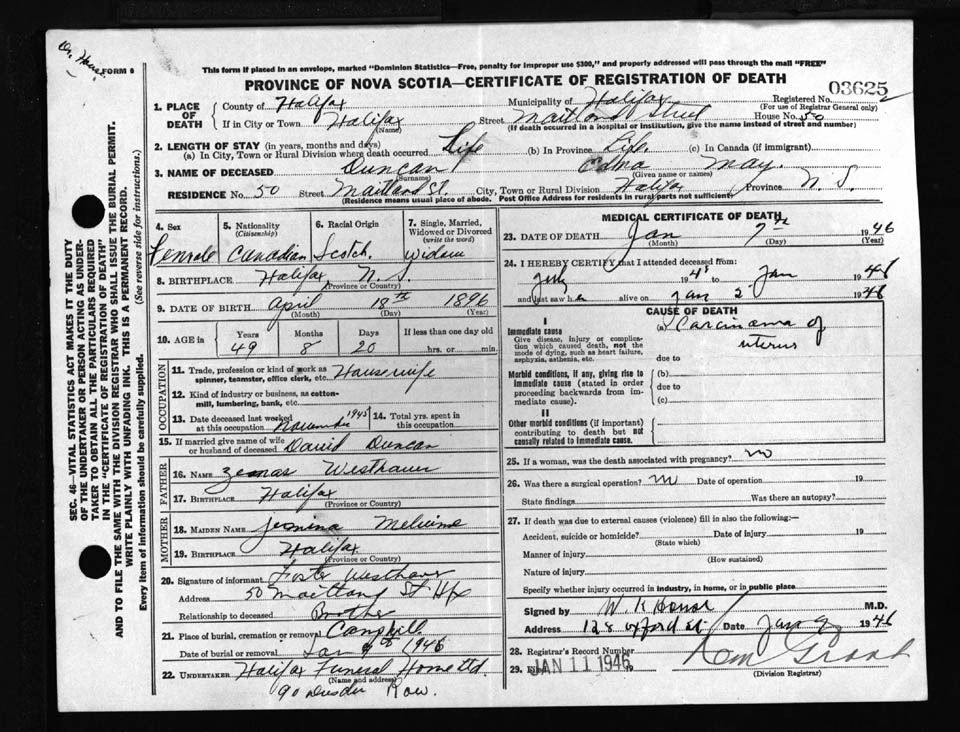 Dr. House.
FORM 6
This form if placed in an envelope, marked "Dominion Statistics—Free, penalty for improper use $300," and properly addressed will pass through the mail "FREE"
PROVINCE OF NOVA SCOTIA—CERTIFICATE OF REGISTRATION OF DEATH
03625
1. PLACE OF DEATH
County of Halifax
Municipality of Halifax
Registered No.
(For use of Registrar General only)
If in City or Town Halifax (Name)
Street Maitland Street House No. 50
(If death occurred in a hospital or institution, give the name instead of street and number)
2. LENGTH OF STAY (in years, months and days)
(a) In City, Town or Rural Division where death occurred Life (b) In Province Life. (c) In Canada (if immigrant)
3. NAME OF DECEASED Duncan Edna May.
(Surname) (Given name or names)
RESIDENCE No. 50 Street Maitland St. City, Town or Rural Division Halifax Province N. S.
(Residence means usual place of abode. Post Office Address for residents in rural parts not sufficient)
SEC. 46—VITAL STATISTICS ACT MAKES IT THE DUTY
OF THE UNDERTAKER OR PERSON ACTING AS UNDER-
TAKER TO OBTAIN ALL THE PARTICULARS REQUIRED
IN THE "CERTIFICATE OF REGISTRATION OF DEATH"
AND TO FILE THE SAME WITH THE DIVISION REGISTRAR WHO SHALL ISSUE THE BURIAL PERMIT.
WRITE PLAINLY WITH UNFADING INK. THIS IS A PERMANENT RECORD.
Every item of information should be carefully supplied. (See reverse side for instructions.)
4. Sex
Female
5. Nationality (Citizenship)
Canadian
6. Racial Origin
Scotch.
7. Single, Married, Widowed or Divorced (write the word)
Widow
8. BIRTHPLACE Halifax N. S.
(Province or Country)
9. DATE OF BIRTH April 18th 1896
(Month) (Day) (Year)
10. AGE in
Years Months Days If less than one day old
49 8 20 hrs. or min.
OCCUPATION
11. Trade, profession or kind of work as spinner, teamster, office clerk, etc. Housewife
12. Kind of industry or business, as cotton-mill, lumbering, bank, etc.
13. Date deceased last worked at this occupation November 1945
14. Total yrs. spent in this occupation
15. If married give name of wife or husband of deceased David Duncan
FATHER
16. NAME Westhaver
17. BIRTHPLACE Halifax
(Province or Country)
MOTHER
18. MAIDEN NAME
19. BIRTHPLACE Halifax
(Province or Country)
20. Signature of informant Foster Westhaver
Address 50 Maitland St Hfx
Relationship to deceased Brother
21. Place of burial, cremation or removal Camphill
Date of burial or removal Jan 9th 1946
22. UNDERTAKER Halifax Funeral Home Ltd.
(Name and address)
90 Row.
MEDICAL CERTIFICATE OF DEATH
23. DATE OF DEATH Jan 7th 1946
(Month) (Day) (Year)
24. I HEREBY CERTIFY that I attended deceased from:
July 1945 to Jan 1946
and last saw her alive on Jan 2 1946
CAUSE OF DEATH
I
Immediate cause
Give disease, injury or complication which caused death, not the mode of dying, such as heart failure, asphyxia, asthenia, etc.
(a) Carcinoma of
uterus
due to
Morbid conditions, if any, giving rise to immediate cause (stated in order proceeding backwards from immediate cause).
(b)
due to
(c)
II
Other morbid conditions (if important) contributing to death but not causally related to immediate cause.
25. If a woman, was the death associated with pregnancy? no
26. Was there a surgical operation? no Date of operation 19
State findings Was there an autopsy?
27. If death was due to external causes (violence) fill in also the following:—
Accident, suicide or homicide? Date of injury 19
(State which)
Manner of injury
(How sustained)
Nature of injury
Specify whether injury occurred in industry, in home, or in public place
Signed by W. K House M.D.
Address 128 Oxford St. Date Jan 9 1946
28. Registrar's Record Number
29. Filed JAN 11 1946
(Division Registrar)